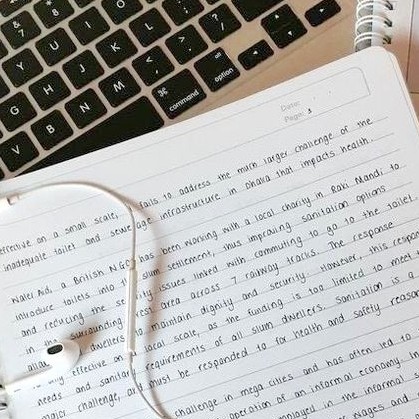 & 7 * 8
Y U I O P
G H J K L : ; " '
V B N M < , > . ? /
⌘ command alt option
Date:
Page: 3
effective on a small scale, fails to address the much larger challenge of the
inadequate toilet and sewerage infrastructure in Dhaka that impacts health.
Water Aid, a British NGO has been working with a local charity in Raki Mandi to
introduce toilets into the slum settlement, thus improving sanitation options
and reducing the security issues linked with commuting to go to the toilet
in the surrounding forest area across 7 railway tracks. The response
dwellers to maintain dignity and security. However, this respon
only effective on a local scale, as the funding is too limited to meet
needs and sanitary requirements of all slum dwellers. Sanitation is a
major challenge, and must be responded to for health and safety reason
challenge in mega cities and has often led to
operation of an informal economy
in the informal
wages and